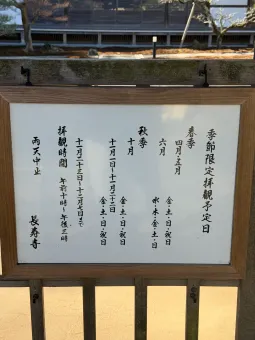 季節限定拝観予定日
春季
四月・五月　金・土・日・祝日
六月　水・木・金・土・日
秋季
十月　金・土・日・祝日
十一月一日～十一月二十二日　金・土・日・祝日
十一月二十三日～十二月七日まで
拝観時間　午前十時～午後三時
雨天中止
長寿寺